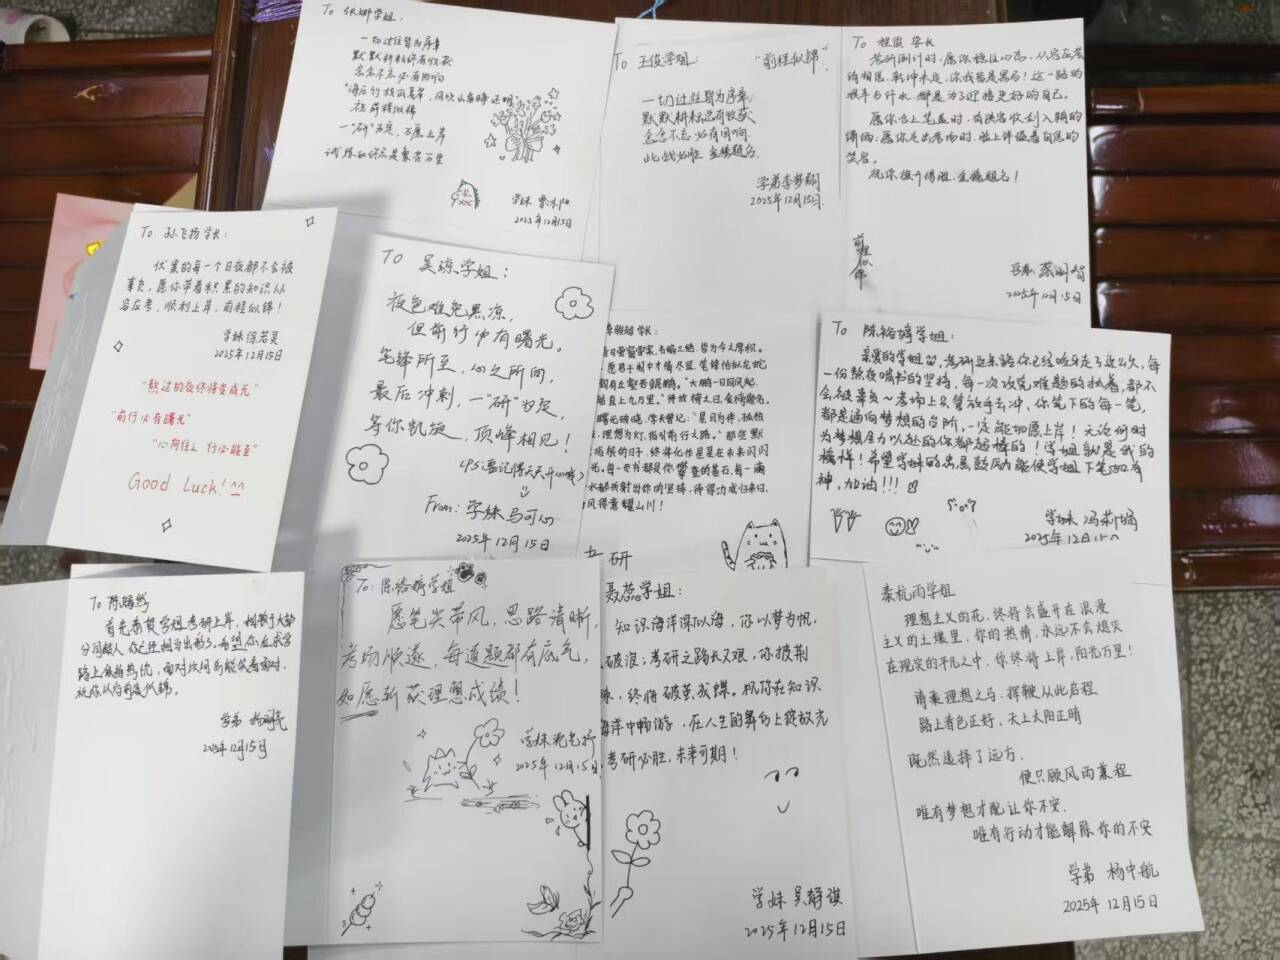 To 张娜学姐：
一切过往皆为序章
默默耕耘终有收获
念念不忘必有回响
就 前程似锦
一"研"为定，万愿上岸
学妹
2025年12月15日
To 王俊学姐：
"前程似锦"
一切过往皆为序章
默默耕耘总有收获
念念不忘必有回响
此战必胜 金榜题名
学弟李梦翔
2025年12月15日
To 程 学长
考研倒计时，愿你稳住心态，从容应考
请相信，乾坤未定，你我皆是黑马！这一路的
艰辛与付出，都是为了迎接更好的自己。
愿你合上笔盖时，有侠客收剑入鞘的
骄傲；愿你走出考场时，脸上洋溢着自信的
笑容。
祝你旗开得胜，金榜题名！
前程似锦
2025年12月15日
To 孙飞扬学长：
伏案的每一个日夜都不会被
辜负，愿你带着积累的知识从
容应考，顺利上岸，前程似锦！
学妹徐若灵
2025年12月15日
"熬过的夜终将变成光"
"前行必有曙光"
"心向往之 行必能至"
Good Luck！^^
To 吴琼学姐：
夜色难免黑凉，
但前行必有曙光。
笔锋所至，心之所向，
最后冲刺，一"研"为定，
等你凯旋，顶峰相见！
(PS：要记得天天开心哦)
From：学妹马可心
2025年12月15日
学长：
昔日萤窗雪案，韦编三绝，皆为今之厚积。
愿君于闱中才情尽显，笔锋恰似龙蛇
"大鹏一日同风起，
扶摇直上九万里。"待放榜之日，金榜题名。
曙光破晓，学夫曾记："星月为伴，孤独
理想为灯，指明前行之路。"那些默
的日子，终将化作星星在未来闪闪
光。每一页书都是你攀登的基石，每一滴
水都折射出你的坚持，待得功成归来日，
风得意耀山川！
研
To 陈裕婷学姐：
亲爱的学姐，考研这条路你已经咬牙走了这么久，每
一份熬夜啃书的坚持，每一次攻克难题的执着，都不
会被辜负～考场上只管放手去冲，你笔下的每一笔，
都是通向梦想的台阶，一定能如愿上岸！无论何时
为梦想全力以赴的你都超棒的！学姐就是我的
榜样！希望学妹的出展鼓励能使学姐下笔如有
神，加油！！！
学妹 冯莉娟
2025年12月15日
To 陈
首先恭贺学姐考研上岸，相较于大部
分同龄人 你已经相当出彩了，希望你在求学
路上保持热忱，面对坎坷고能笑着面对，
祝你以后前度似锦。
学弟
2025年12月15日
To：陈裕婷学姐
愿笔尖带风，思路清晰，
考场顺遂，每道题都有底气，
如愿斩获理想成绩！
学妹
2025年12月15日
聂蕊学姐：
知识海洋深似海，你以梦为帆，
破浪；考研之路长又艰，你披荆
棘，终将破茧成蝶。祝你在知识
海洋中畅游，在人生的舞台上绽放光
考研必胜，未来可期！
学妹 吴静琪
2025年12月15日
秦杭雨学姐
理想主义的花，终将会盛开在浪漫
主义的土壤里，你的热情，永远不会熄灭
在现实的平凡之中，你终将上岸，阳光万里！
请乘理想之马，挥鞭从此启程
路上春色正好，天上太阳正晴
既然选择了远方，
便只顾风雨兼程
唯有梦想才配让你不安，
唯有行动才能解除你的不安
学弟 杨中航
2025年12月15日